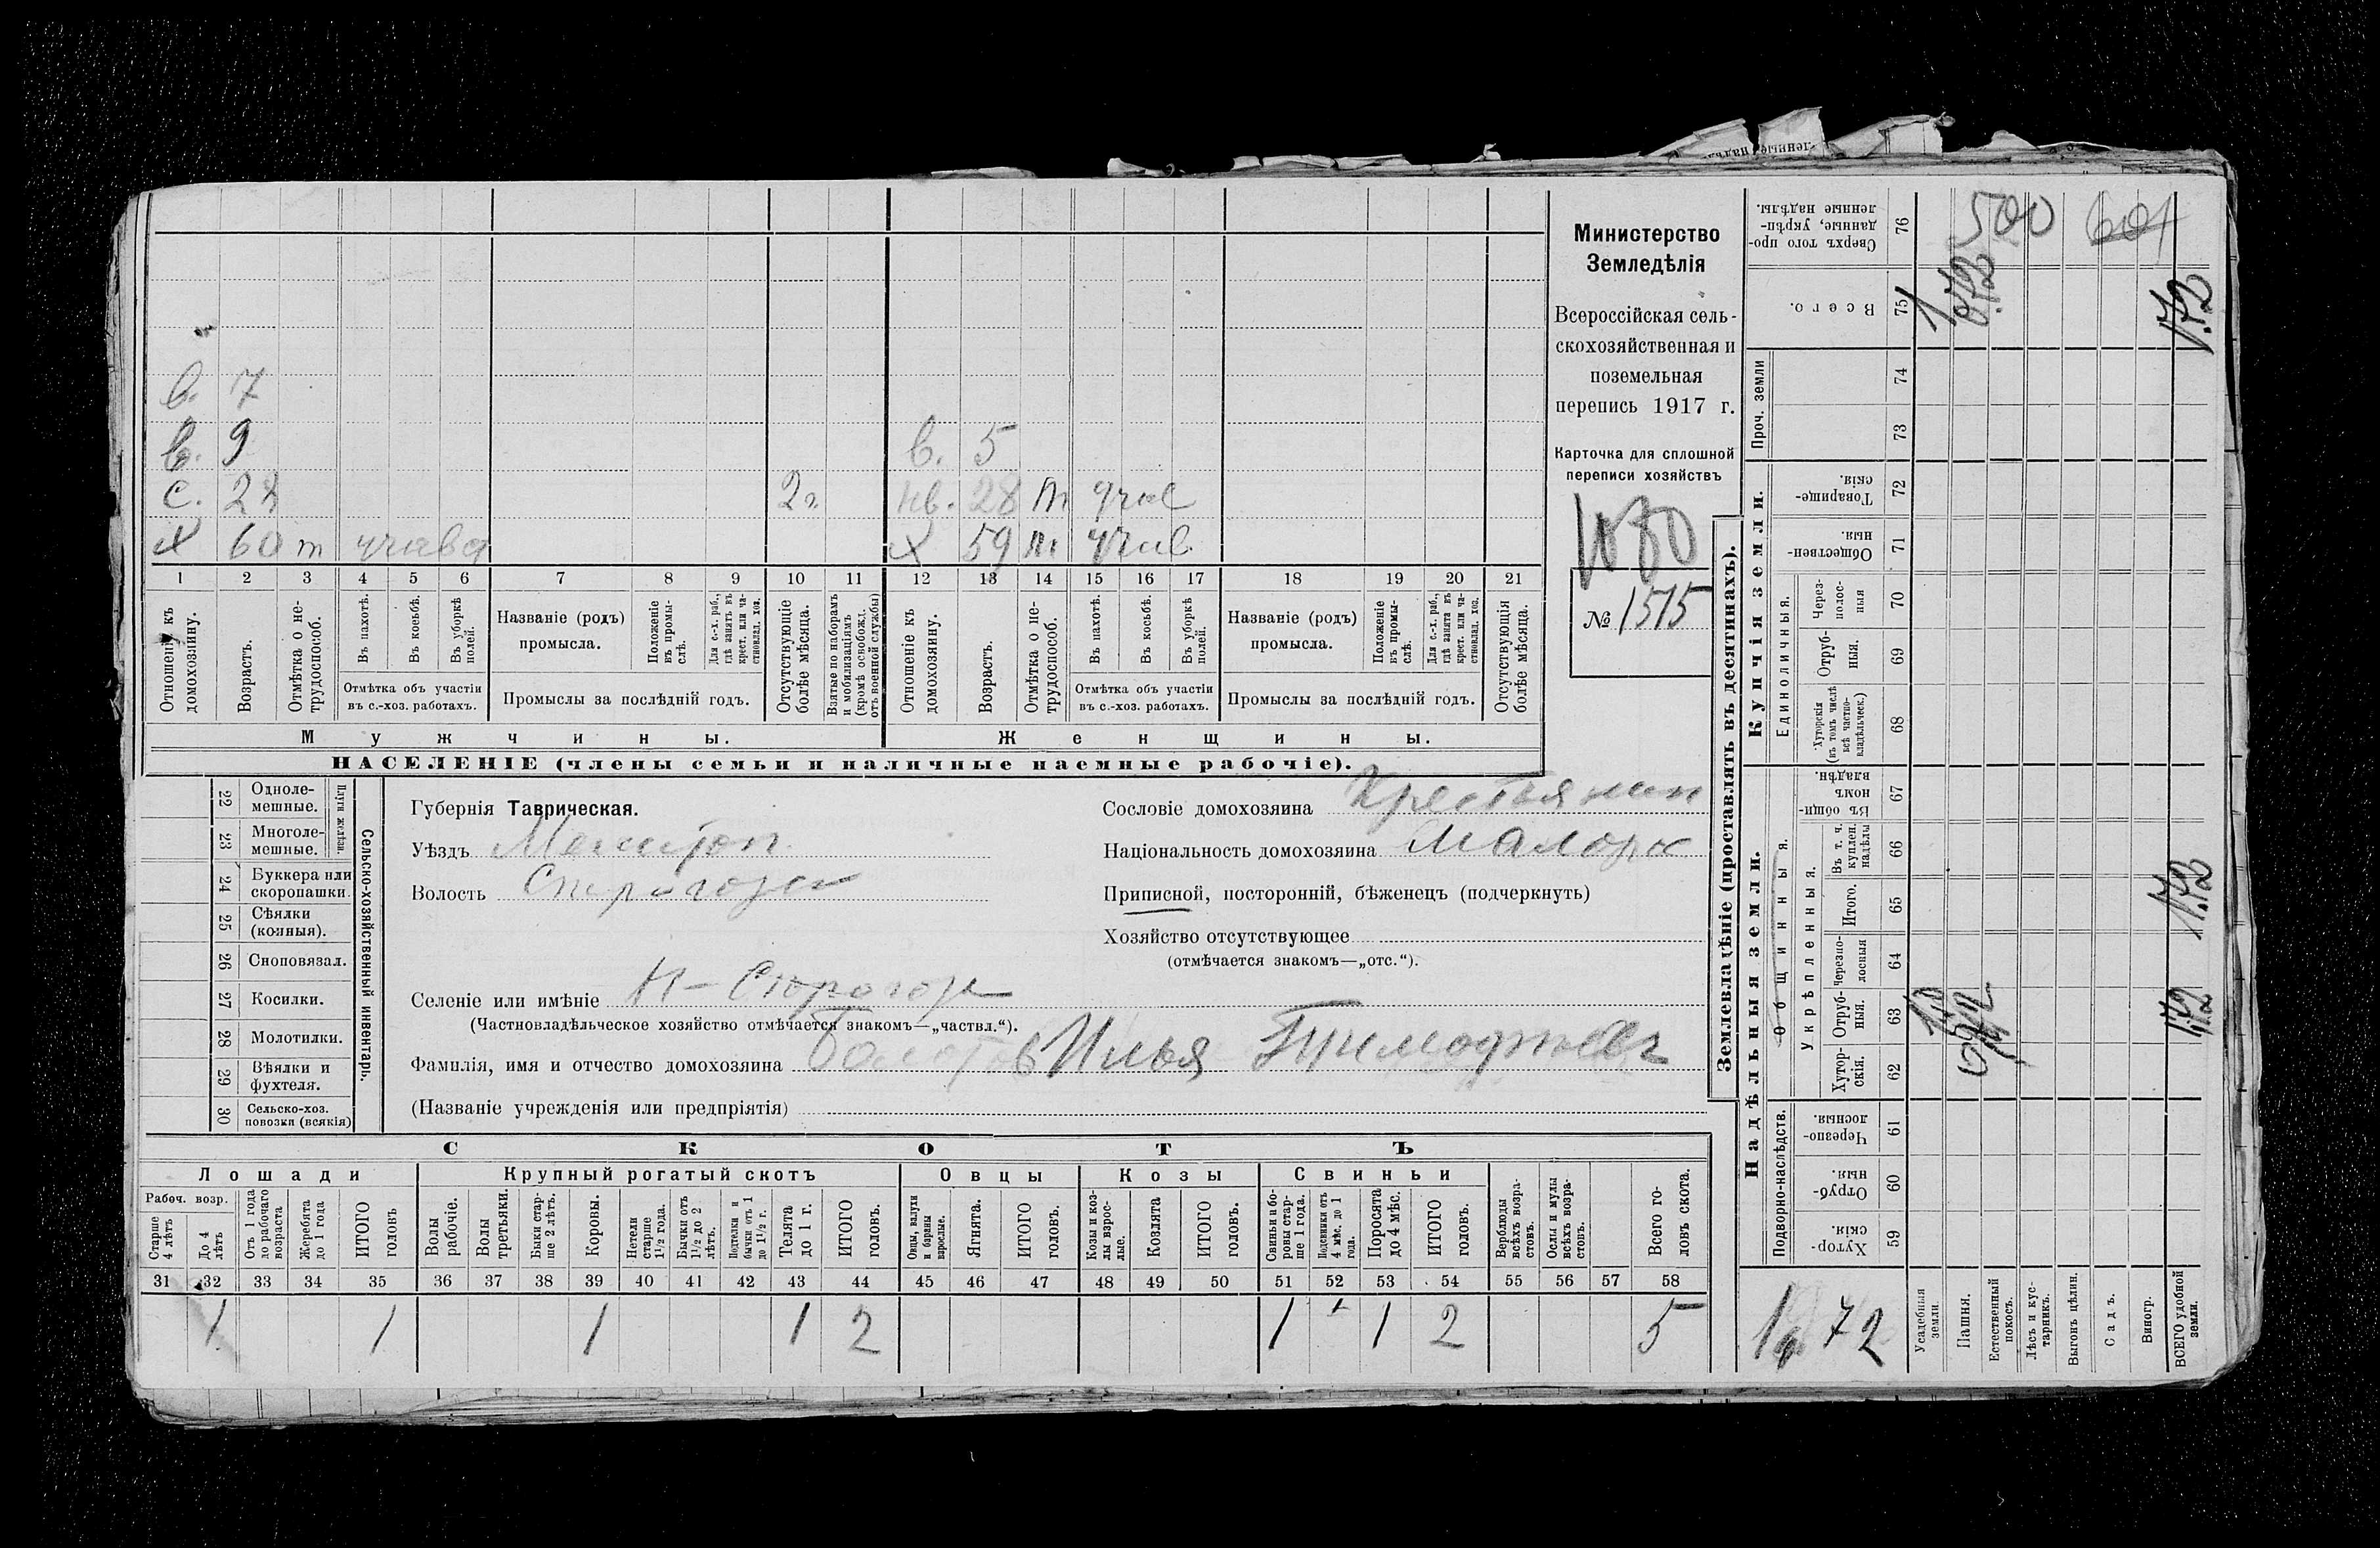 в. 7
в. 9 в. 5
с. 2г. нв. 28 т
х 60 т х 59 т
1 2 3 4 5 6 7 8 9 10 11 12 13 14 15 16 17 18 19 20 21
Отношеніе къ домохозяину.
Возрастъ.
Отмѣтка о нетрудоспособ.
Въ пахотѣ.
Въ косьбѣ.
Въ уборкѣ полей.
Отмѣтка объ участіи
въ с.-хоз. работахъ.
Названіе (родъ)
промысла.
Положеніе въ промыслѣ.
Для с.-х. раб., гдѣ занятъ въ крест. или частновлад. хоз.
Промыслы за послѣдній годъ.
Отсутствующіе болѣе мѣсяца.
Взятые по наборамъ и мобилизаціямъ (кромѣ освобожд. отъ военной службы)
Отношеніе къ домохозяину.
Возрастъ.
Отмѣтка о нетрудоспособ.
Въ пахотѣ.
Въ косьбѣ.
Въ уборкѣ полей.
Отмѣтка объ участіи
въ с.-хоз. работахъ.
Названіе (родъ)
промысла.
Положеніе въ промыслѣ.
Для с.-х. раб., гдѣ занята въ крест. или частновлад. хоз.
Промыслы за послѣдній годъ.
Отсутствующія болѣе мѣсяца.
Мужчины. Женщины.
НАСЕЛЕНІЕ (члены семьи и наличные наемные рабочіе).
Министерство
Земледѣлія
Всероссійская сель-
скохозяйственная и
поземельная
перепись 1917 г.
Карточка для сплошной
переписи хозяйствъ
1080
№ 1515
22 Одноле-
мешные.
23 Многоле-
мешные.
Плуги желѣзн.
24 Буккера или
скоропашки.
25 Сѣялки
(конныя).
26 Сноповязал.
27 Косилки.
28 Молотилки.
29 Вѣялки и
фухтеля.
30 Сельско-хоз.
повозки (всякія)
Сельско-хозяйственный инвентарь.
Губернія Таврическая.
Уѣздъ Мелитоп.
Волость
Селеніе или имѣніе Н-
(Частновладѣльческое хозяйство отмѣчается знакомъ—„частвл.“).
Фамилія, имя и отчество домохозяина Илья Тимофѣев
(Названіе учрежденія или предпріятія)
Сословіе домохозяина Крестьянин
Національность домохозяина Малорос
Приписной, посторонній, бѣженецъ (подчеркнуть)
Хозяйство отсутствующее
(отмѣчается знакомъ—„отс.“).
СКОТЪ
Лошади Крупный рогатый скотъ Овцы Козы Свиньи
Рабоч. возр.
Старше 4 лѣтъ
До 4 лѣтъ
Отъ 1 года до рабочаго возраста
Жеребята до 1 года
ИТОГО головъ
Волы рабочіе.
Волы третьяки.
Быки старше 2 лѣтъ.
Коровы.
Нетели старше 1½ года.
Бычки отъ 1½ до 2 лѣтъ.
Подтелки и бычки отъ 1 до 1½ г.
Телята до 1 г.
ИТОГО головъ.
Овцы, валухи и бараны взрослые.
Ягнята.
ИТОГО головъ.
Козы и козлы взрослые.
Козлята
ИТОГО головъ.
Свиньи и боровы старше 1 года.
Подсвинки отъ 4 мѣс. до 1 года.
Поросята до 4 мѣс.
ИТОГО головъ.
Верблюды всѣхъ возрастовъ.
Ослы и мулы всѣхъ возрастовъ.
Всего головъ скота.
31 32 33 34 35 36 37 38 39 40 41 42 43 44 45 46 47 48 49 50 51 52 53 54 55 56 57 58
1 1 1 1 2 1 1 2 5
Землевладѣніе (проставлять въ десятинахъ).
Надѣльныя земли. Купчія земли.
Подворно-наслѣдств.
Общинныя.
Укрѣпленныя.
Единоличныя.
Проч. земли
Хуторскія. 59
Отрубныя. 60
Черезполосныя 61
Хуторскія. 62
Отрубныя. 63
Черезполосныя 64
Итого. 65
Въ т. ч. куплен. надѣлы 66
Въ общинномъ владѣн. 67
Хуторскія (въ томъ числѣ всѣ частновладѣльческ.) 68
Отрубныя. 69
Черезполосныя 70
Общественныя. 71
Товарищескія. 72
73
74
Всего. 75
Сверхъ того проданные, укрѣпленные надѣлы. 76
500 601
1,72
1,72
1,72
1,72
Усадебныя земли.
Пашня.
Естественный покосъ.
Лѣсъ и кустарникъ.
Выгонъ цѣлин.
Садъ.
Виногр.
ВСЕГО удобной земли.